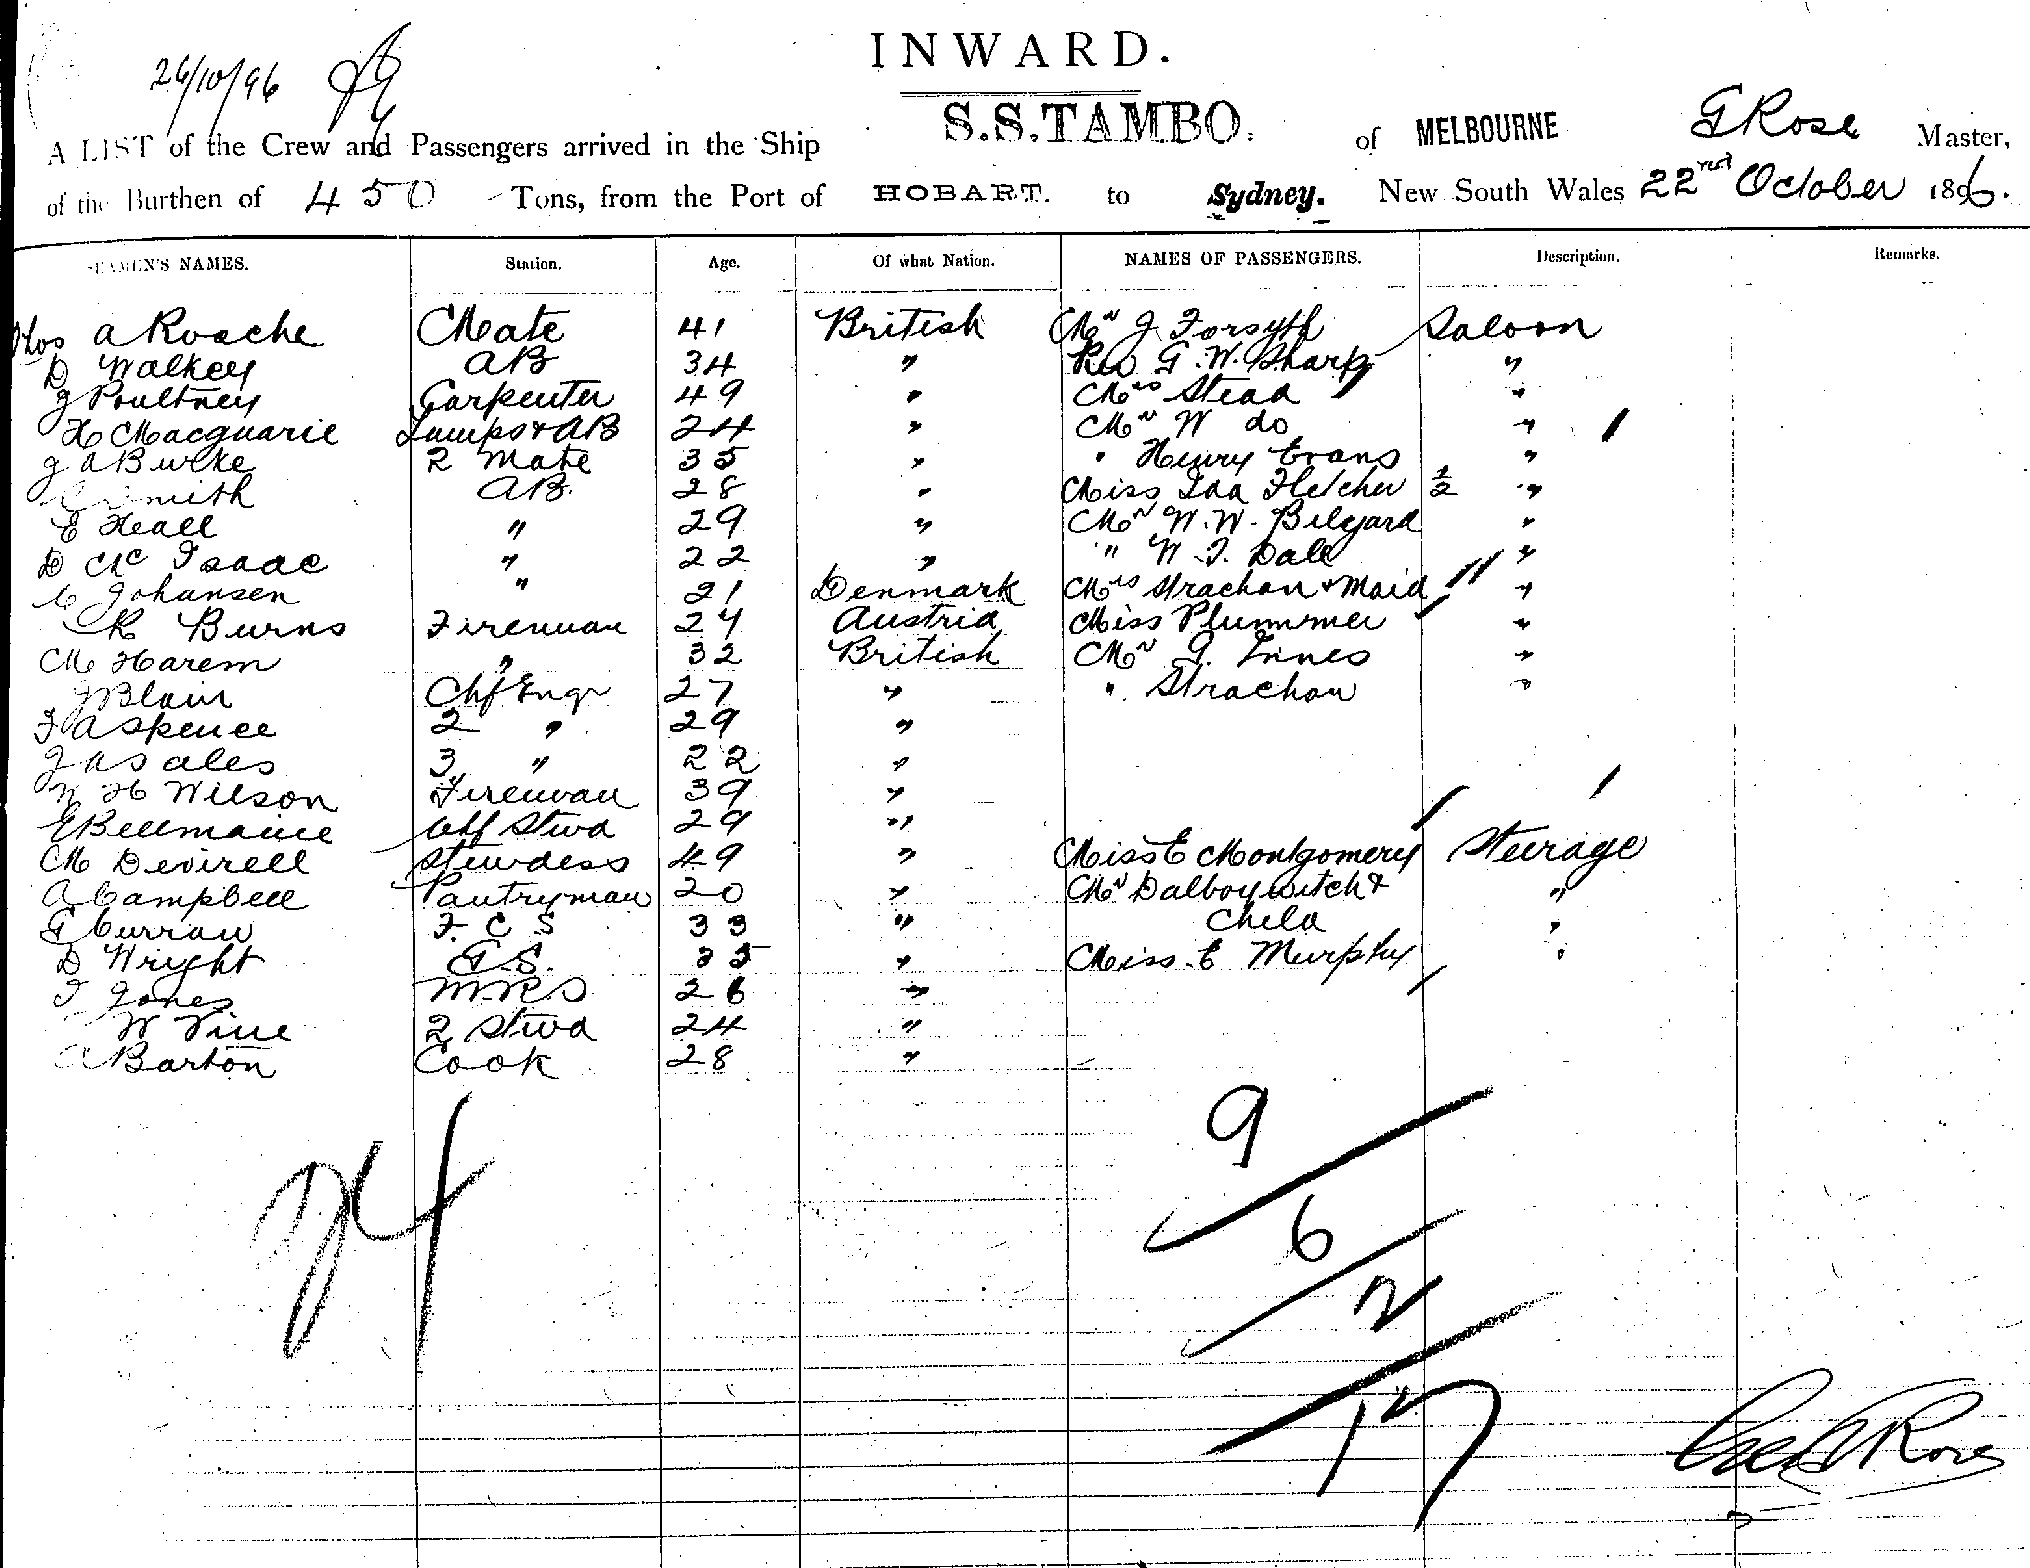 INWARD.
26/10/96
A LIST of the Crew and Passengers arrived in the Ship S.S. TAMBO. of MELBOURNE G Rose Master,
of the Burthen of 450 Tons, from the Port of HOBART. to Sydney. New South Wales 22nd October 1896.
SEAMEN'S NAMES. Station. Age. Of what Nation. NAMES OF PASSENGERS. Description. Remarks.
Thos A Rosche Mate 41 British Mr J Forsyth Saloon
D Walkey AB 34 " Rev G. W. Sharp "
J Poultney Carpenter 49 " Mrs Stead "
H Macquarie Lamps & AB 24 " Mr W do "
J A Burke 2 Mate 35 " " Henry Evans "
Smith AB. 28 " Miss Ida Fletcher 1/2 "
E Heall " 29 " Mr W. W. Bilyard "
D Mc Isaac " 22 " " W. T. Dale "
C Johansen " 21 Denmark Mrs Strachan & Maid "
R Burns Fireman 24 Austria Miss Plummer "
M Harem " 32 British Mr G. Innes "
J Blair Chf Engr 27 " " Strachan "
F A Spence 2 " 29 "
J A Sales 3 " 22 "
W H Wilson Fireman 39 "
E Bellmaine Chf Stwd 29 "
M Devirell Stewdess 49 " Miss E Montgomery Steerage
A Campbell Pantryman 20 " Mr Dalboywitch & "
G Curran F. C S 33 " Child "
D Wright G S. 35 " Miss E Murphy "
T Jones M R S 26 "
W Vine 2 Stwd 24 "
A Barton Cook 28 "
24
9
6
2
17
Rose